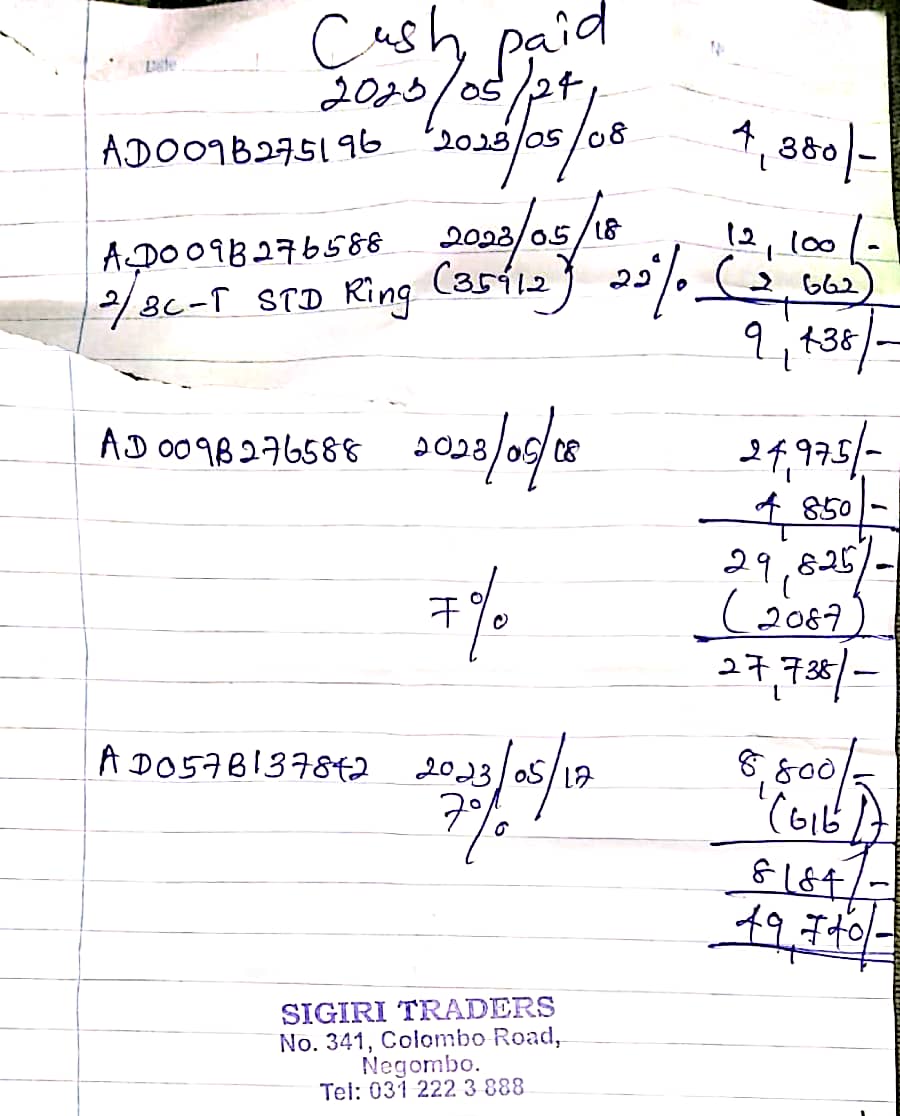 Cash paid
2023/05/24
AD009B275196 2023/05/08 4,380/-
AD009B276588 2023/05/18 12,100/-
2/3C-T STD Ring (35912) 22% (2,662)
9,438/-
AD009B276588 2023/05/08 24,975/-
4,850/-
29,825/-
7% (2087)
27,738/-
AD057B137842 2023/05/17 8,800/-
7% (616)
8184/-
49,740/-
SIGIRI TRADERS
No. 341, Colombo Road,
Negombo.
Tel: 031 222 3 888